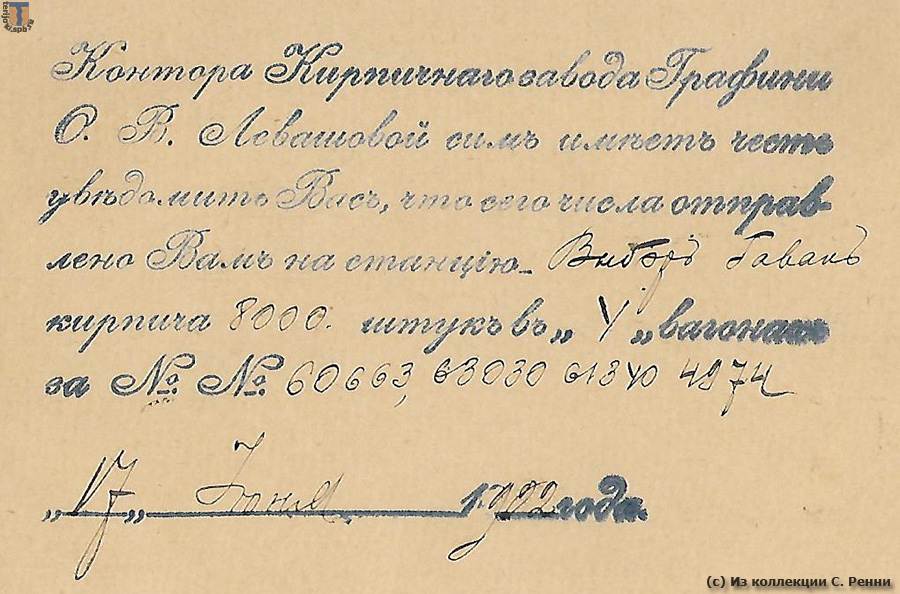 Контора Кирпичнаго завода Графини
О. В. Левашовой симъ имѣетъ честь
увѣдомить Васъ, что сего числа отправ-
лено Вамъ на станцію Выборъ Гавань
кирпича 8000. штукъ въ „ 4 „ вагонахъ
за №№ 60663, 63030 61340 4974
„17„ Іюня 1902 года.
(с) Из коллекции С. Ренни